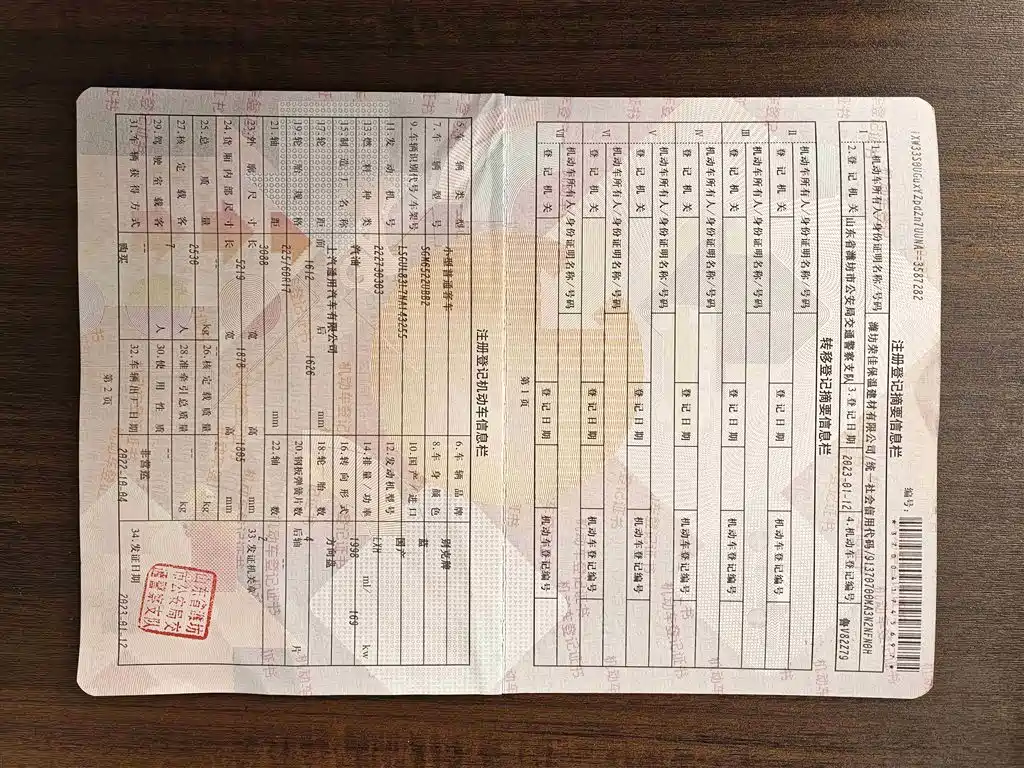 iXW33S0UGuxYZpdZn7UUNA==3587282
编号:
注册登记摘要信息栏
Ⅰ 1.机动车所有人/身份证明名称/号码 潍坊荣佳保温建材有限公司/统一社会信用代码/91370700MA3N2NFN0H
2.登记机关 山东省潍坊市公安局交通警察支队 3.登记日期 2023-01-12 4.机动车登记编号 鲁V82Z79
转移登记摘要信息栏
Ⅱ 机动车所有人/身份证明名称/号码
登记机关 登记日期 机动车登记编号
Ⅲ 机动车所有人/身份证明名称/号码
登记机关 登记日期 机动车登记编号
Ⅳ 机动车所有人/身份证明名称/号码
登记机关 登记日期 机动车登记编号
Ⅴ 机动车所有人/身份证明名称/号码
登记机关 登记日期 机动车登记编号
Ⅵ 机动车所有人/身份证明名称/号码
登记机关 登记日期 机动车登记编号
Ⅶ 机动车所有人/身份证明名称/号码
登记机关 登记日期 机动车登记编号
第1页
注册登记机动车信息栏
5.车辆类型 小型普通客车 6.车辆品牌 别克牌
7.车辆型号 SGM6522UBB2 8.车身颜色 蓝
9.车辆识别代号/车架号 LSGUL83L7NA143255 10.国产/进口 国产
11.发动机号 222730303 12.发动机型号 LXH
13.燃料种类 汽油 14.排量/功率 1998 ml/ 169 kw
15.制造厂名称 上汽通用汽车有限公司 16.转向形式 方向盘
17.轮距 前 1612 后 1626 mm 18.轮胎数 4
19.轮胎规格 225/60R17 20.钢板弹簧片数 后轴 片
21.轴距 3088 mm 22.轴数 2
23.外廓尺寸 长 5219 宽 1878 高 1805 mm 33.发证机关章
24.货厢内部尺寸 长 宽 高 mm
25.总质量 2530 kg 26.核定载质量 kg
27.核定载客 7 人 28.准牵引总质量 kg
29.驾驶室载客 人 30.使用性质 非营运
31.车辆获得方式 购买 32.车辆出厂日期 2022-10-04 34.发证日期 2023-01-12
山东省潍坊
市公安局交
通警察支队
第2页